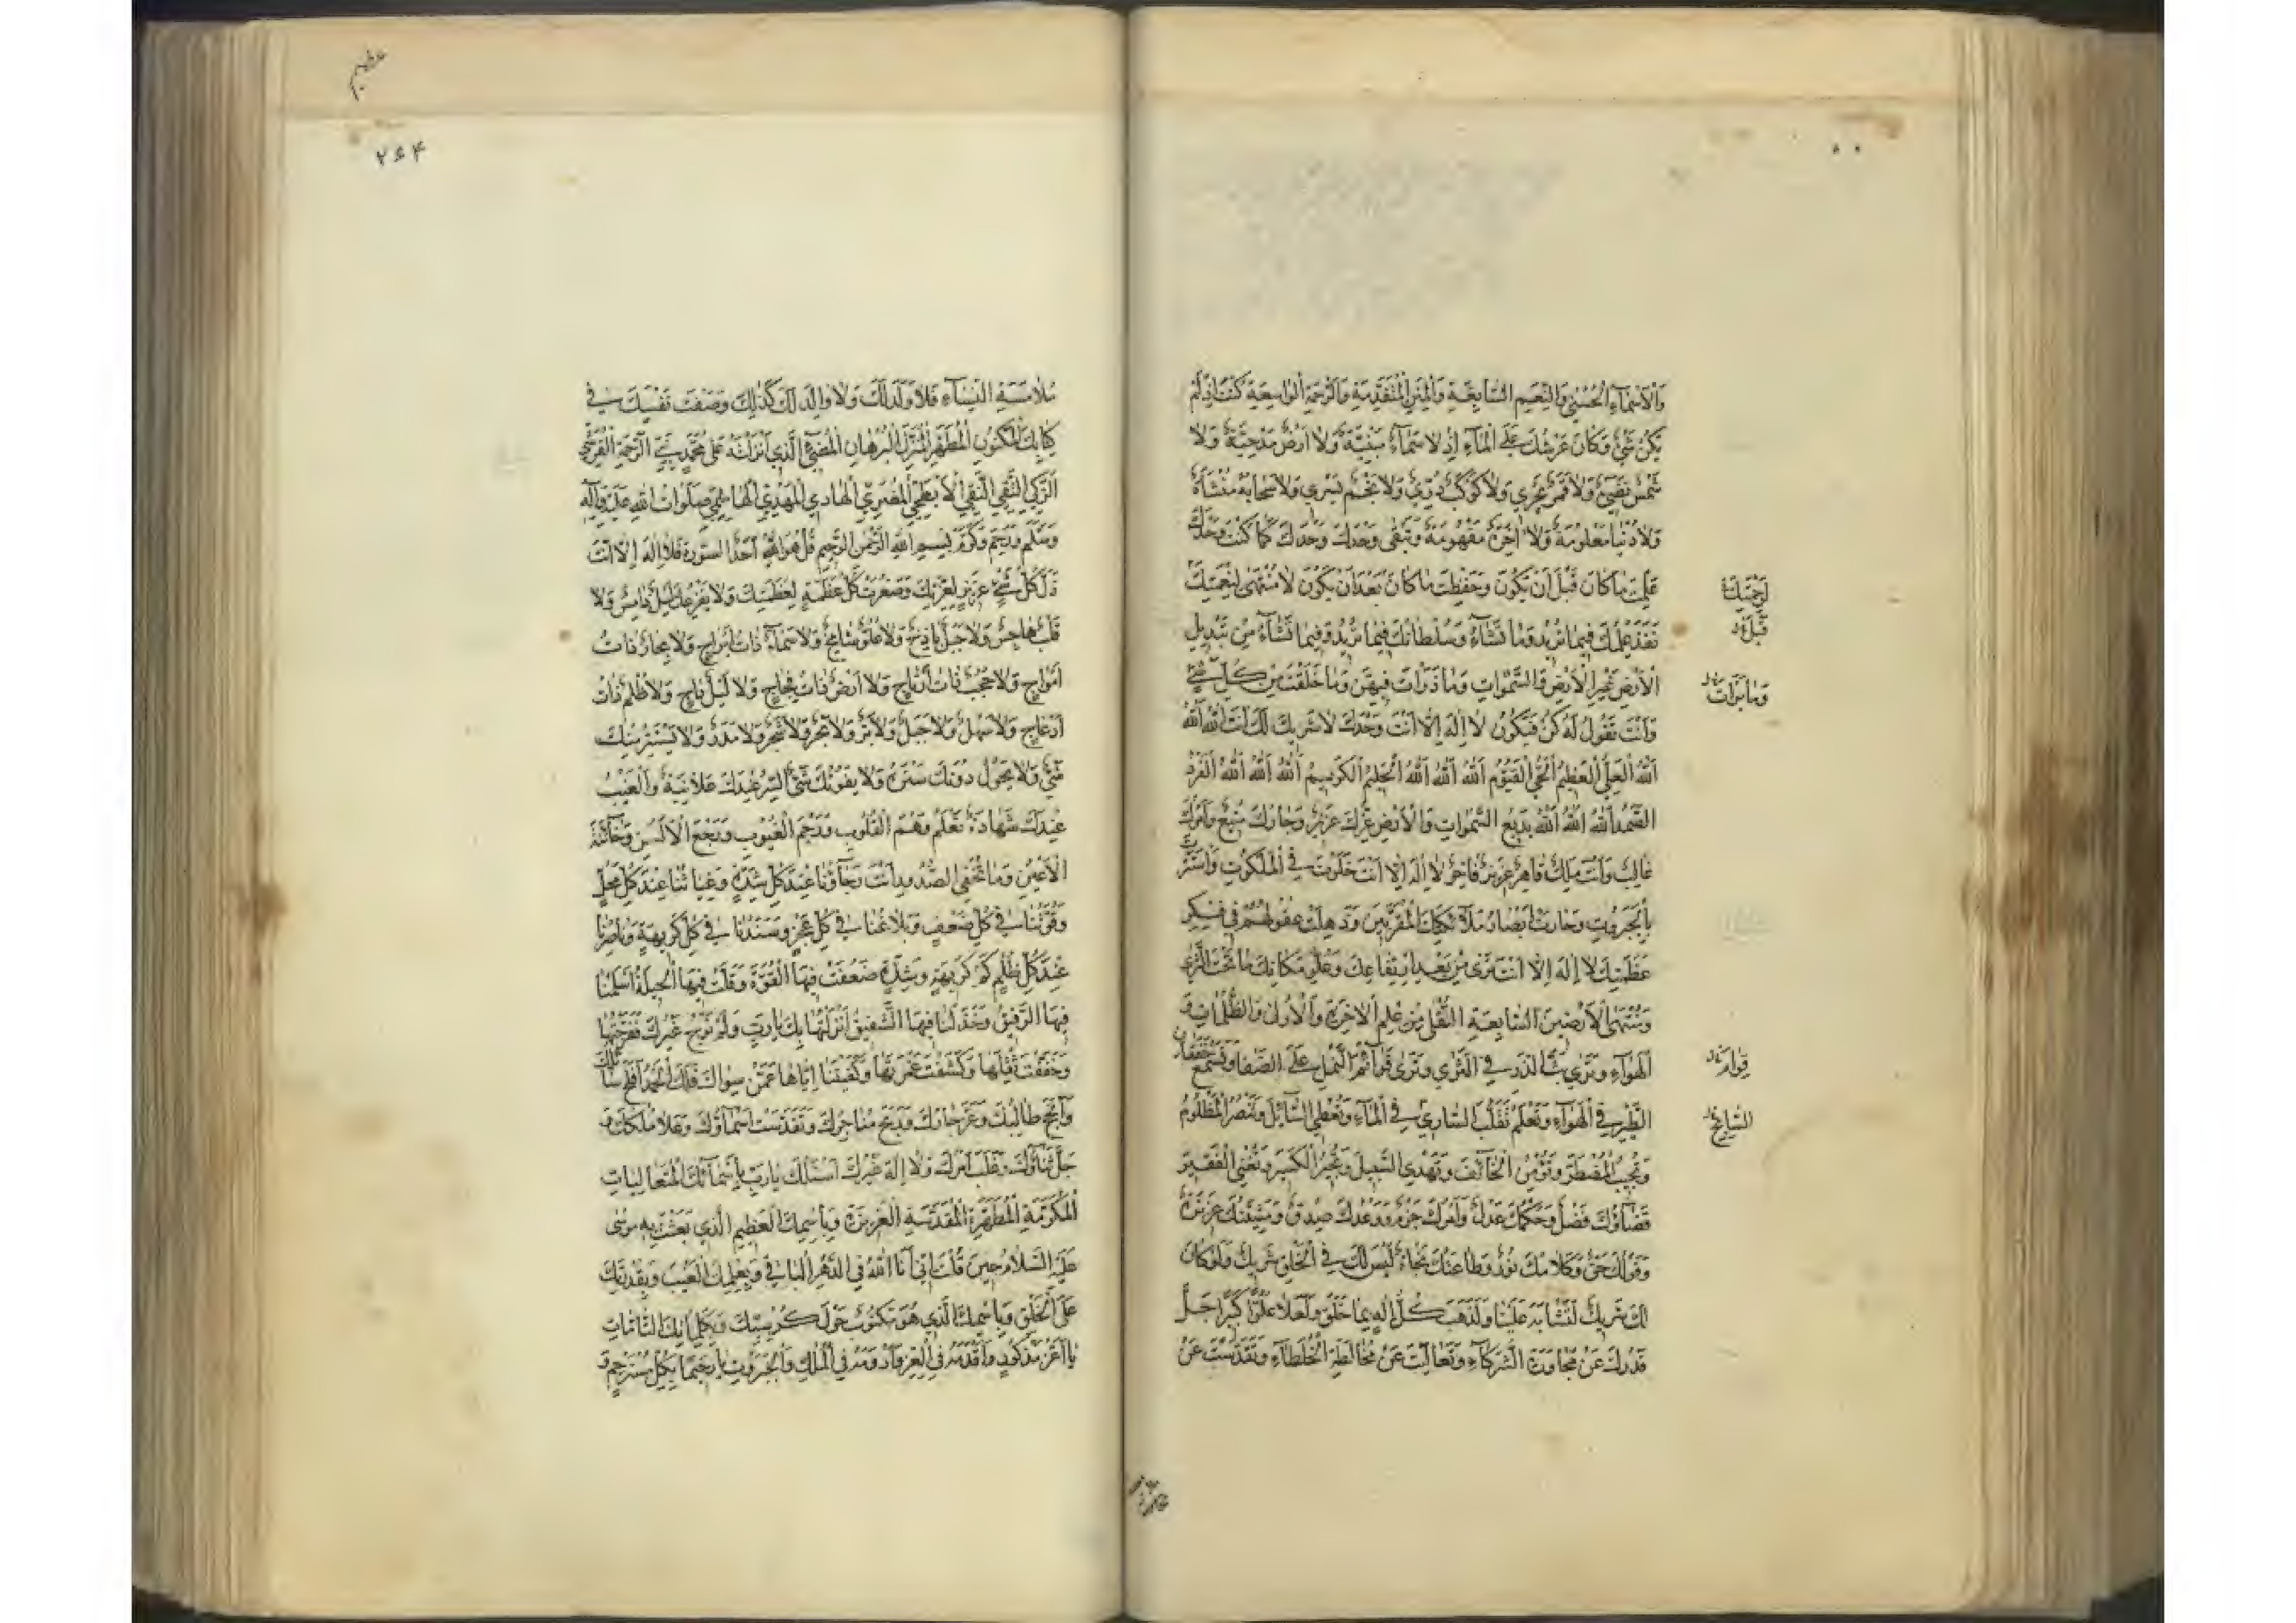 وَالْاَسْمَآءِ الْحُسْنٰى وَالنَّعِيمِ السَّابِغَةِ وَالْمِنَنِ الْمُتَقَدِّمَةِ وَالرَّحْمَةِ الْوَاسِعَةِ كُنْتَ اِذْ لَمْ
يَكُنْ شَيْءٌ وَكَانَ عَرْشُكَ عَلَى الْمَآءِ اِذْ لَا سَمَآءٌ مَبْنِيَّةٌ وَلَا اَرْضٌ مَدْحِيَّةٌ وَلَا
شَمْسٌ تُضِيءُ وَلَا قَمَرٌ يَجْرِي وَلَا كَوْكَبٌ دُرِّيٌّ وَلَا نَجْمٌ يَسْرِي وَلَا سَحَابَةٌ مُنْشَاَةٌ
وَلَا دُنْيَا مَعْلُومَةٌ وَلَا اٰخِرَةٌ مَفْهُومَةٌ وَتَبْقٰى وَحْدَكَ وَحْدَكَ كَمَا كُنْتَ وَحْدَكَ
عَلِمْتَ مَا كَانَ قَبْلَ اَنْ يَكُونَ وَحَفِظْتَ مَا كَانَ بَعْدَ اَنْ يَكُونَ لَا مُنْتَهٰى لِنِعْمَتِكَ
نَفَذَ عِلْمُكَ فِيمَا تُرِيدُ وَمَا تَشَآءُ وَسُلْطَانُكَ فِيمَا تُرِيدُ وَفِيمَا تَشَآءُ مِنْ تَبْدِيلِ
الْاَرْضِ غَيْرَ الْاَرْضِ وَالسَّمٰوَاتِ وَمَا ذَرَاْتَ فِيهِنَّ وَمَا خَلَقْتَ مِنْ كُلِّ شَيْءٍ
وَمَا بَرَاْتَ
وَاَنْتَ تَقُولُ لَهُ كُنْ فَيَكُونُ لَا اِلٰهَ اِلَّا اَنْتَ وَحْدَكَ لَا شَرِيكَ لَكَ اَنْتَ اللّٰهُ اللّٰهُ
اللّٰهُ الْعَلِيُّ الْعَظِيمُ الْحَيُّ الْقَيُّومُ اللّٰهُ اللّٰهُ اللّٰهُ الْحَلِيمُ الْكَرِيمُ اللّٰهُ اللّٰهُ اللّٰهُ الْفَرْدُ
الصَّمَدُ اللّٰهُ اللّٰهُ اللّٰهُ بَدِيعُ السَّمٰوَاتِ وَالْاَرْضِ عِزُّكَ عَزِيزٌ وَجَارُكَ مَنِيعٌ وَاَمْرُكَ
غَالِبٌ وَاَنْتَ مَلِكٌ قَاهِرٌ عَزِيزٌ فَاخِرٌ لَا اِلٰهَ اِلَّا اَنْتَ خَلَوْتَ فِي الْمَلَكُوتِ وَاسْتَتَرْتَ
بِالْجَبَرُوتِ وَحَارَتْ اَبْصَارُ مَلَآئِكَتِكَ الْمُقَرَّبِينَ وَذَهِلَتْ عُقُولُهُمْ فِي فِكْرِ
عَظَمَتِكَ لَا اِلٰهَ اِلَّا اَنْتَ تَرٰى مِنْ بُعْدِ ارْتِفَاعِكَ وَعُلُوِّ مَكَانِكَ مَا تَحْتَ الثَّرٰى
وَمُنْتَهَى الْاَرَضِينَ السَّابِعَةِ السُّفْلٰى مِنْ عِلْمِ الْاٰخِرَةِ وَالْاُولٰى وَالظُّلُمَاتِ وَ
الْهَوَآءِ وَتَرٰى بَثَّ الذَّرِّ فِي الثَّرٰى وَتَرٰى قَوَائِمَ النَّمْلِ عَلَى الصَّفَا وَتَسْمَعُ خَفَقَانَ
الطَّيْرِ فِي الْهَوَآءِ وَتَعْلَمُ تَقَلُّبَ السَّارِي فِي الْمَآءِ وَتُعْطِي السَّآئِلَ وَتَنْصُرُ الْمَظْلُومَ
وَتُجِيبُ الْمُضْطَرَّ وَتُؤْمِنُ الْخَآئِفَ وَتَهْدِي السَّبِيلَ وَتَجْبُرُ الْكَسِيرَ وَتُغْنِي الْفَقِيرَ
قَضَآؤُكَ فَصْلٌ وَحُكْمُكَ عَدْلٌ وَاَمْرُكَ جَزْمٌ وَوَعْدُكَ صِدْقٌ وَمَشِيَّتُكَ عَزِيزَةٌ
وَقَوْلُكَ حَقٌّ وَكَلَامُكَ نُورٌ وَطَاعَتُكَ نَجَاةٌ لَيْسَ لَكَ فِي الْخَلْقِ شَرِيكٌ وَلَوْ كَانَ
لَكَ شَرِيكٌ لَتَشَابَهَ عَلَيْنَا وَلَذَهَبَ كُلُّ اِلٰهٍ بِمَا خَلَقَ وَلَعَلَا عُلُوًّا كَبِيرًا جَلَّ
قَدْرُكَ عَنْ مُجَاوَرَةِ الشُّرَكَآءِ وَتَعَالَيْتَ عَنْ مُخَالَطَةِ الْخُلَطَآءِ وَتَقَدَّسْتَ عَنْ
۲۶۴
مُلَامَسَةِ النِّسَآءِ فَلَا وَلَدَ لَكَ وَلَا وَالِدَ لَكَ كَذٰلِكَ وَصَفْتَ نَفْسَكَ فِي
كِتَابِكَ الْمَكْنُونِ الْمُطَهَّرِ الْمُنْزَلِ الْبُرْهَانِ الْمُضِيءِ الَّذِي اَنْزَلْتَهُ عَلٰى مُحَمَّدٍ نَبِيِّ الرَّحْمَةِ الْقُرَشِيِّ
الزَّكِيِّ التَّقِيِّ النَّقِيِّ الْاَبْطَحِيِّ الْمُضَرِيِّ الْهَادِي الْمَهْدِيِّ الْهَاشِمِيِّ صَلَوَاتُ اللّٰهِ عَلَيْهِ وَآلِهِ
وَسَلَّمَ وَرَحِمَ وَكَرَّمَ بِسْمِ اللّٰهِ الرَّحْمٰنِ الرَّحِيمِ قُلْ هُوَ اللّٰهُ اَحَدٌ السورة فَلَا اِلٰهَ اِلَّا اَنْتَ
ذَلَّ كُلُّ شَيْءٍ عَزِيزٍ لِعِزَّتِكَ وَصَغُرَتْ كُلُّ عَظَمَةٍ لِعَظَمَتِكَ وَلَا يُفْزِعُكَ لَيْلٌ دَامِسٌ وَلَا
قَلْبٌ هَاجِسٌ وَلَا جَبَلٌ بَاذِخٌ وَلَا عُلُوٌّ شَامِخٌ وَلَا سَمَآءٌ ذَاتُ اَبْرَاجٍ وَلَا بِحَارٌ ذَاتُ
اَمْوَاجٍ وَلَا حُجُبٌ ذَاتُ اَرْتَاجٍ وَلَا اَرْضٌ ذَاتُ فِجَاجٍ وَلَا لَيْلٌ دَاجٍ وَلَا ظُلَمٌ ذَاتُ
اَدْعَاجٍ وَلَا سَهْلٌ وَلَا جَبَلٌ وَلَا بَرٌّ وَلَا بَحْرٌ وَلَا شَجَرٌ وَلَا مَدَرٌ وَلَا يَسْتَتِرُ مِنْكَ
شَيْءٌ وَلَا يَحُولُ دُونَكَ سِتْرٌ وَلَا يَفُوتُكَ شَيْءٌ السِّرُّ عِنْدَكَ عَلَانِيَةٌ وَالْغَيْبُ
عِنْدَكَ شَهَادَةٌ تَعْلَمُ وَهْمَ الْقُلُوبِ وَرَجْمَ الْغُيُوبِ وَرَجْعَ الْاَلْسُنِ وَخَآئِنَةَ
الْاَعْيُنِ وَمَا تُخْفِي الصُّدُورُ اَنْتَ رَجَآؤُنَا عِنْدَ كُلِّ شِدَّةٍ وَغِيَاثُنَا عِنْدَ كُلِّ مَحَلٍّ
وَقُوَّتُنَا فِي كُلِّ ضَعْفٍ وَبَلَاغُنَا فِي كُلِّ عَجْزٍ وَسَنَدُنَا فِي كُلِّ كَرِيهَةٍ وَنَاصِرُنَا
عِنْدَ كُلِّ ظُلْمٍ كَمْ كَرِيهَةٍ وَشِدَّةٍ ضَعُفَتْ فِيهَا الْقُوَّةُ وَقَلَّتْ فِيهَا الْحِيلَةُ اَسْلَمَنَا
فِيهَا الرَّفِيقُ وَخَذَلَنَا فِيهَا الشَّفِيقُ اَنْزَلْتُهَا بِكَ يَا رَبِّ وَلَمْ نَرْجُ غَيْرَكَ فَفَرَّجْتَهَا
وَخَفَّفْتَ ثِقْلَهَا وَكَشَفْتَ غَمْرَتَهَا وَكَفَيْتَنَا اِيَّاهَا عَمَّنْ سِوَاكَ فَلَكَ الْحَمْدُ اَفْلَحَ سَآئِلُكَ
وَاَنْجَحَ طَالِبُكَ وَعَزَّ جَارُكَ وَرَبِحَ مُتَاجِرُكَ وَتَقَدَّسَتْ اَسْمَآؤُكَ وَعَلَا مُلْكُكَ وَ
جَلَّ ثَنَآؤُكَ وَغَلَبَ اَمْرُكَ وَلَا اِلٰهَ غَيْرُكَ اَسْئَلُكَ يَا رَبِّ بِاَسْمَآئِكَ الْمُتَعَالِيَاتِ
الْمُكَرَّمَةِ الْمُطَهَّرَةِ الْمُقَدَّسَةِ الْعَزِيزَةِ وَبِاسْمِكَ الْعَظِيمِ الَّذِي بَعَثْتَ بِهِ مُوسٰى
عَلَيْهِ السَّلَامُ حِينَ قُلْتَ اِنِّي اَنَا اللّٰهُ فِي الدَّهْرِ الْبَاقِي وَبِعِلْمِكَ الْغَيْبَ وَبِقُدْرَتِكَ
عَلَى الْخَلْقِ وَبِاسْمِكَ الَّذِي هُوَ مَكْتُوبٌ حَوْلَ كُرْسِيِّكَ وَبِكَلِمَاتِكَ التَّامَّاتِ
يَا اَعَزَّ مَذْكُورٍ وَاَقْدَمَهُ فِي الْعِزِّ وَاَدْوَمَهُ فِي الْمُلْكِ وَالْجَبَرُوتِ يَا رَحِيمًا بِكُلِّ مُسْتَرْحِمٍ وَ